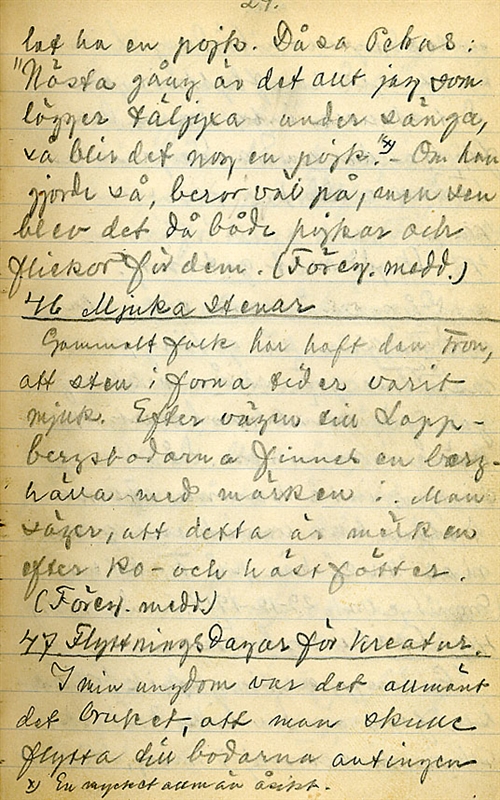 27.
lat ha en pojk. Då sa Petrus:
"Nästa gång är det allt jag som
lägger täljyxa under sänga,
så blir det nog en pojk." x) - Om han
gjorde så, beror väl på, men sen
blev det då både pojkar och
flickor för dem. (Föreg. medd.)
46 Mjuka stenar
Gammalt folk har haft den tron,
att sten i forna tider varit
mjuk. Efter vägen till Lapp-
bergsbodarna finnes en berg-
hälla med märken i. Man
säger, att detta är märken
efter ko- och hästfötter.
(Föreg. medd.)
47 Flyttningsdagar för kreatur.
I min ungdom var det allmänt
det bruket, att man skulle
flytta till bodarna antingen
x) En mycket allmän åsikt.